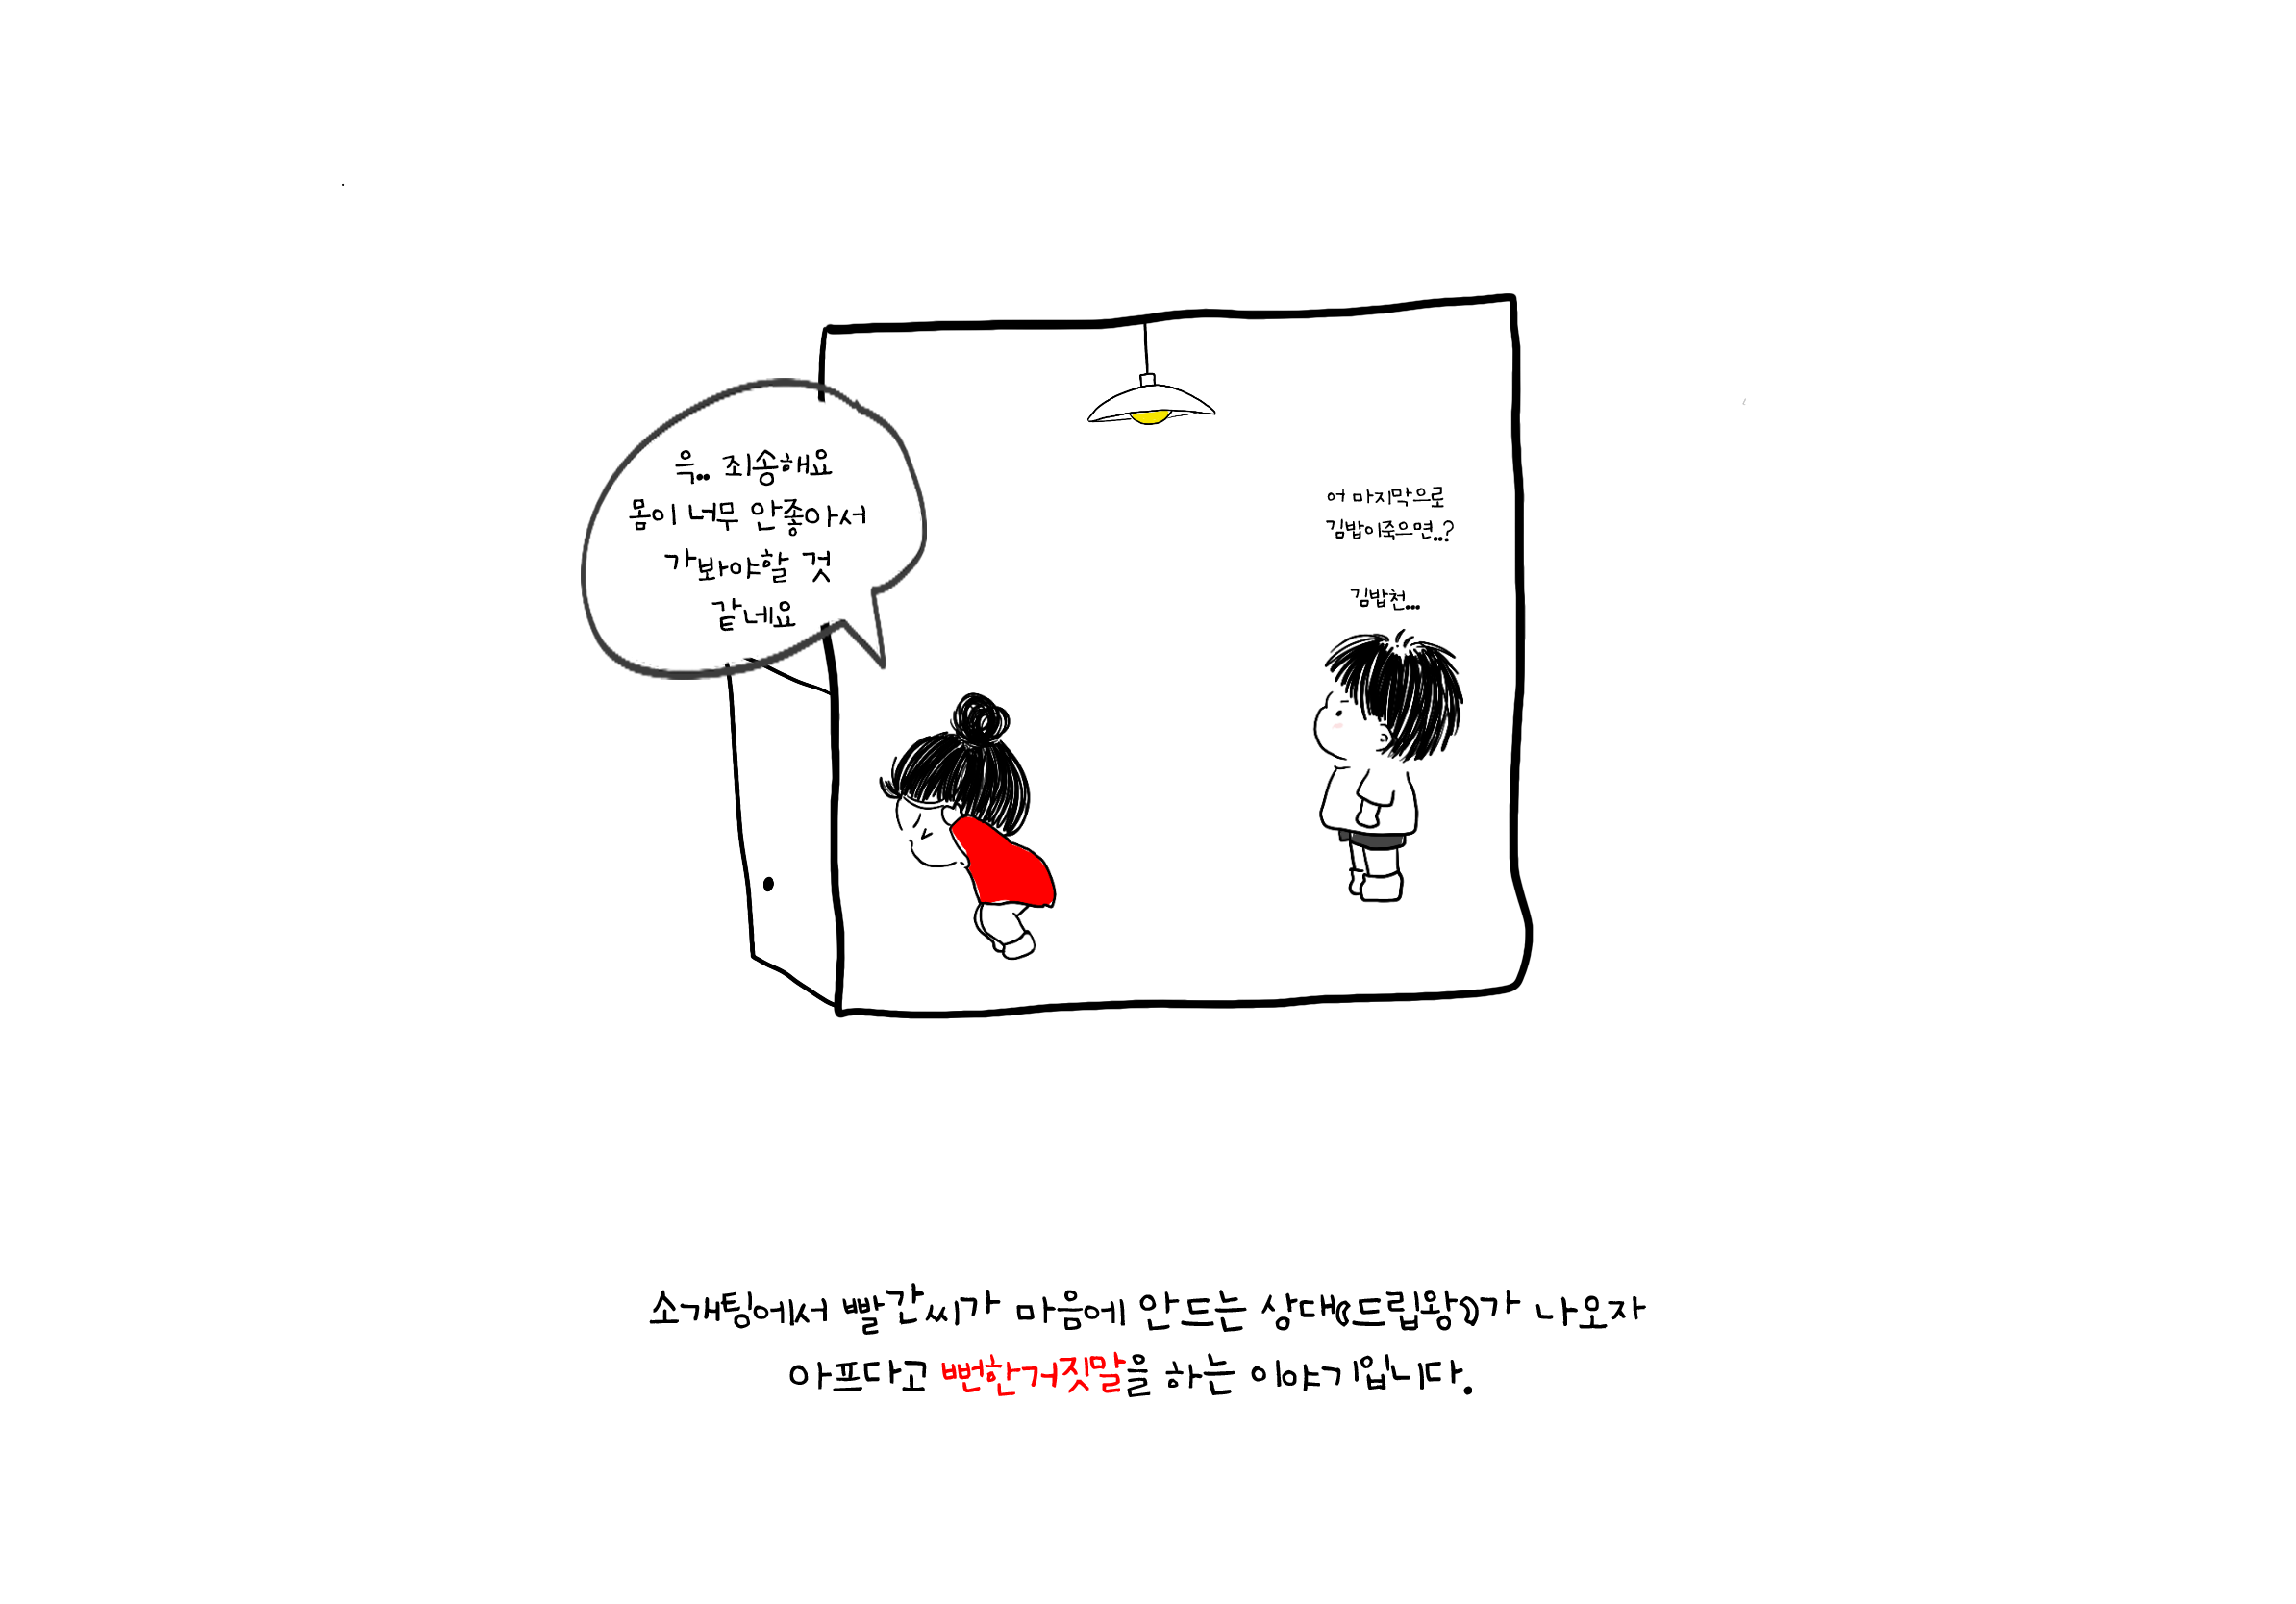 윽.. 죄송해요
몸이 너무 안좋아서
가봐야할 것
같네요
어 마지막으로
김밥이죽으면..?
김밥천...
소개팅에서 빨간씨가 마음에 안드는 상대(드립왕)가 나오자
아프다고 뻔한거짓말을 하는 이야기입니다.